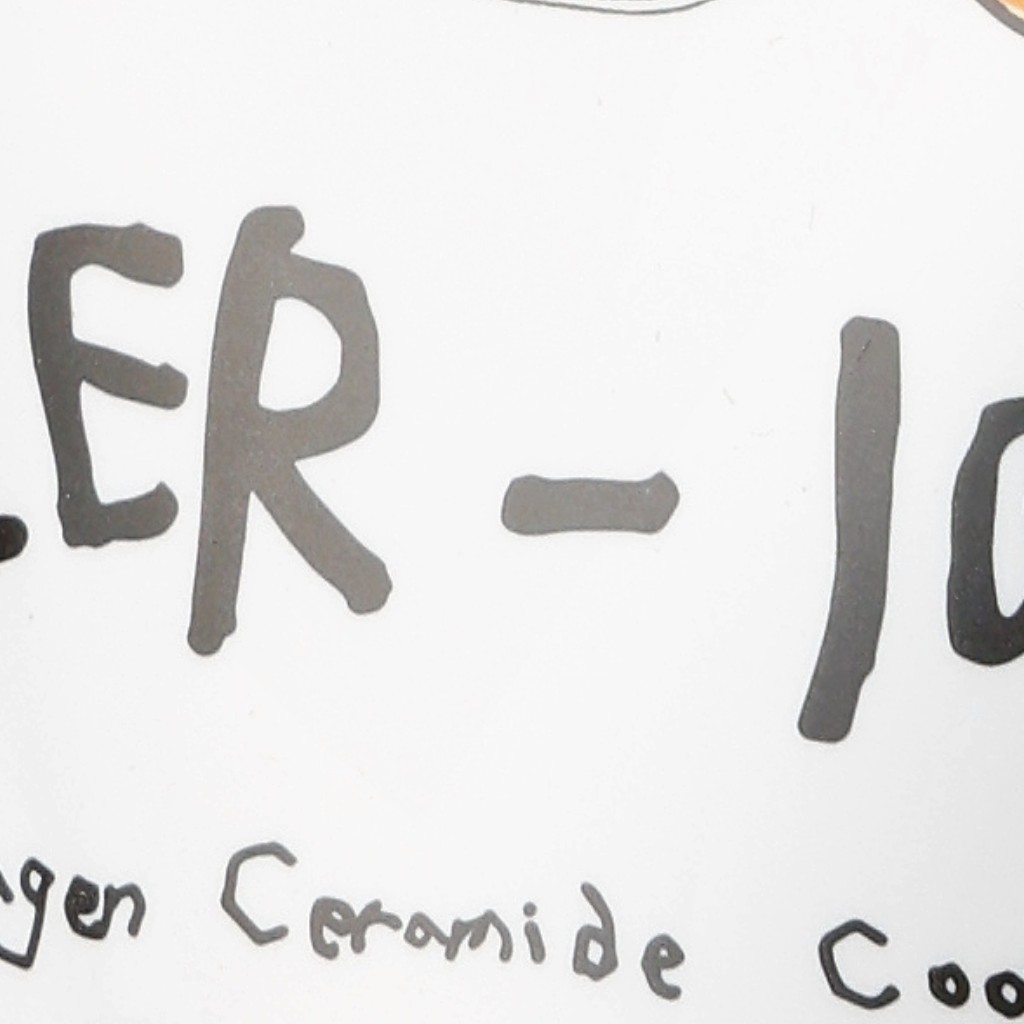 ER - 10
gen Ceramide Coo